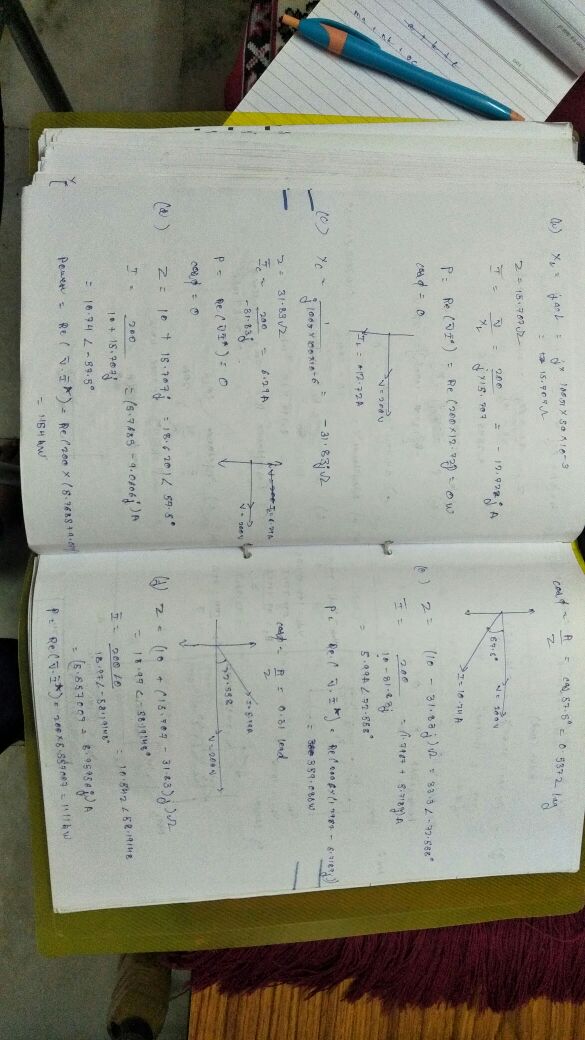 (b) X_L = jωL = j × 100π × 50 × 10^-3
= 15.707Ω
Z = 15.707Ω
I = V / X_L = 200 / j×15.707 = -12.72j A
P = Re (V I*) = Re (200×12.72j) = 0 W
cosφ = 0
V = 200V
I_L = 12.72A
(c) X_c = 1 / j100π×100×10^-6 = -31.83j Ω
Z = 31.83Ω
I_c = 200 / -31.83j = 6.27A
P = Re (V I*) = 0
cosφ = 0
I = 6.27A
V = 200V
(d) Z = 10 + 15.707j = 18.6201 ∠ 57.5°
I = 200 / 10 + 15.707j = (5.7685 - 9.0606j) A
= 10.74 ∠ -57.5°
Power = Re ( V. I*) = Re (200 × (5.7685+9.06
= 1154W
cosφ = R / Z = cos 57.5° = 0.5372 lag
57.5°
V = 200V
I = 10.74A
(e) Z = (10 - 31.83j)Ω = 33.3 ∠ -72.558°
I = 200 / 10 - 31.83j = (1.797 + 5.7189j) A
= 5.994 ∠ 72.558°
P = Re ( V. I*) = Re (200 × (1.797 - 5.7189j))
= 359.036W
cosφ = R / Z = 0.31 lead
72.558
V = 200V
(f) Z = (10 + (15.707 - 31.83)j)Ω
= 18.97 ∠ -58.19148°
I = 200∠0 / 18.97 ∠ -58.19148° = 10.542 ∠ 58.19148
= (5.557007 + 8.9598j) A
P = Re ( V. I*) = 200 × 5.557007 = 1111W